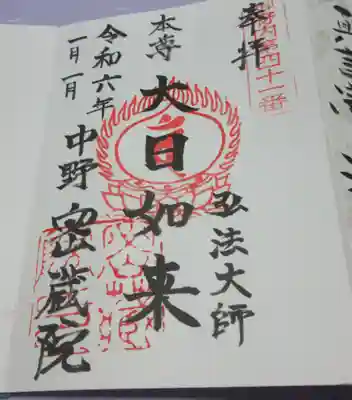 奉拝
府内第四十一番
弘法大師
本尊
大日如来
令和六年
一月一日
中野
密蔵院